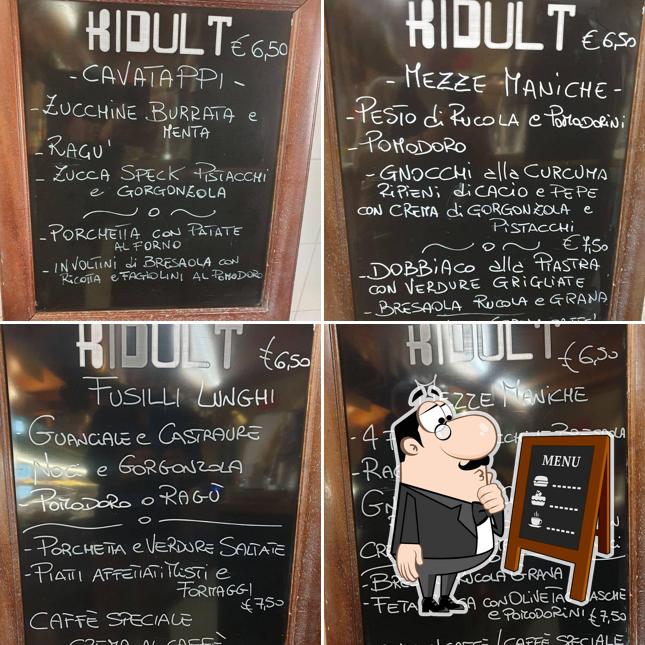 KIDULT
€ 6,50
- CAVATAPPI -
- ZUCCHINE BURRATA e
MENTA
- RAGU'
- ZUCCA SPECK PISTACCHI
e GORGONZOLA
- PORCHETTA CON PATATE
AL FORNO
- INVOLTINI di BRESAOLA CON
RICOTTA e FAGIOLINI AL POMODORO
KIDULT
€ 6,50
- MEZZE MANICHE -
- PESTO di RUCOLA e POMODORINI
- POMODORO
- GNOCCHI alla CURCUMA
RIPIENI di CACIO e PEPE
CON CREMA di GORGONZOLA e
PISTACCHI
€ 7,50
- DOBBIACO alla PIASTRA
CON VERDURE GRIGLIATE
- BRESAOLA RUCOLA e GRANA
KIDULT
€ 6,50
FUSILLI LUNGHI
- GUANCIALE e CASTRAURE
- NOCI e GORGONZOLA
- POMODORO o RAGÙ
- PORCHETTA e VERDURE SALTATE
- PIATTI AFFETTATI MISTI e
FORMAGGI
€ 7,50
CAFFÈ SPECIALE
CREMA AL CAFFÈ
KIDULT
€ 6,50
MEZZE MANICHE
MENU
RUCOLA GRANA
- FETA CON OLIVE TAGGIASCHE
e POMODORINI € 7,50
CAFFÈ SPECIALE